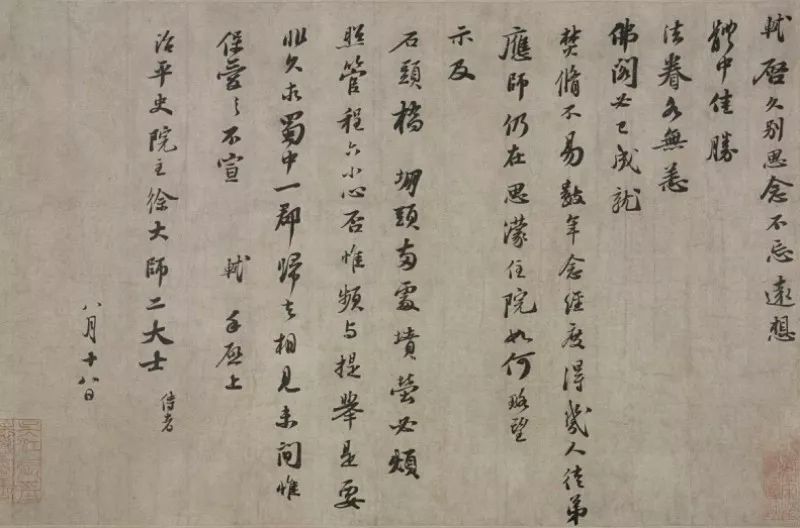 軾啓久別思念不忘遠想
體中佳勝
法眷各無恙
佛閣必已成就
焚脩不易數年念經度得幾人徒弟
應師仍在思濛住院如何略望
示及
石頭橋堋頭兩處墳塋必煩
照管程六小心否惟頻與提舉是要
非久求蜀中一郡歸去相見未間惟
保愛之不宣 軾手啟上
治平史院主徐大師二大士 侍者
八月十八日